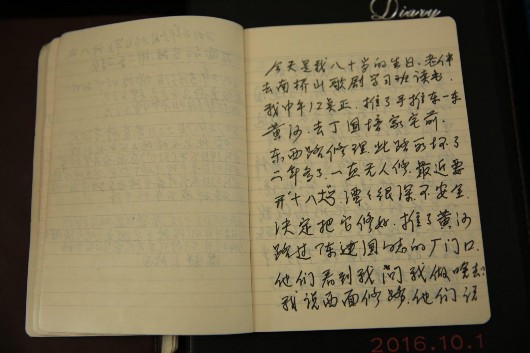 Diary
今天是我八十岁的生日。老伴
去南桥山歌剧学习班读书，
我中午12点正，推了手推车一车
黄沙，去丁国培家宅前，
东西路修理，此路死坏了
二年多了，一直无人修，最近要
开十八，潭潭很深不安全，
决定把它修好，推了黄沙
路过陈建国的厂门口，
他们看到我问我做啥去？
我说西面修路，他们说
2016.10.1